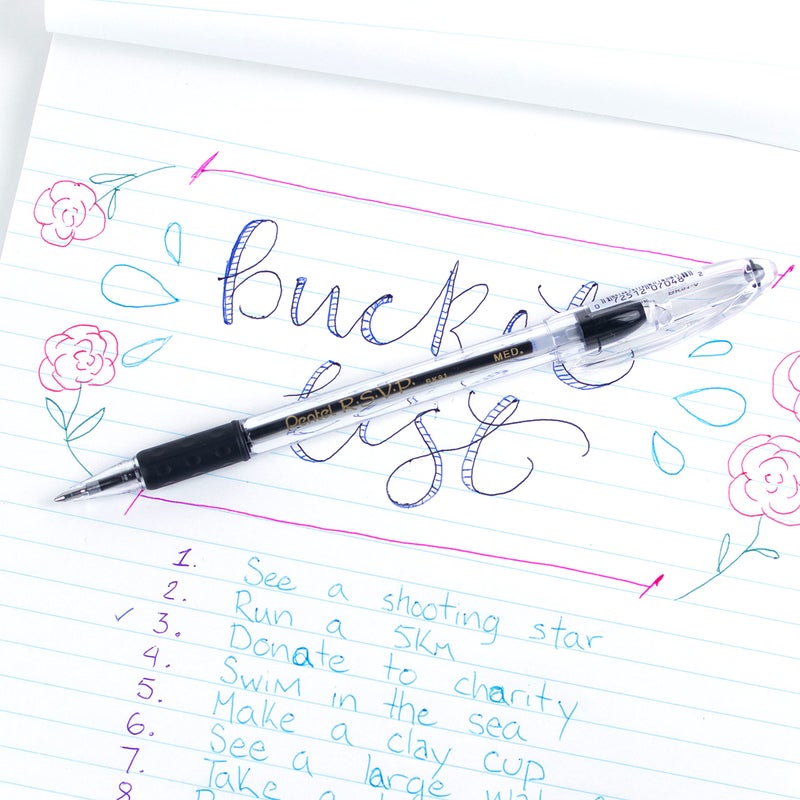 bucket
list
0 72512 07048 2
Pentel R.S.V.P. BK91 MED.
1. See a shooting star
2. Run a 5KM
✓ 3. Donate to charity
4. Swim in the sea
5. Make a clay cup
6. See a large
7. Take a
8.